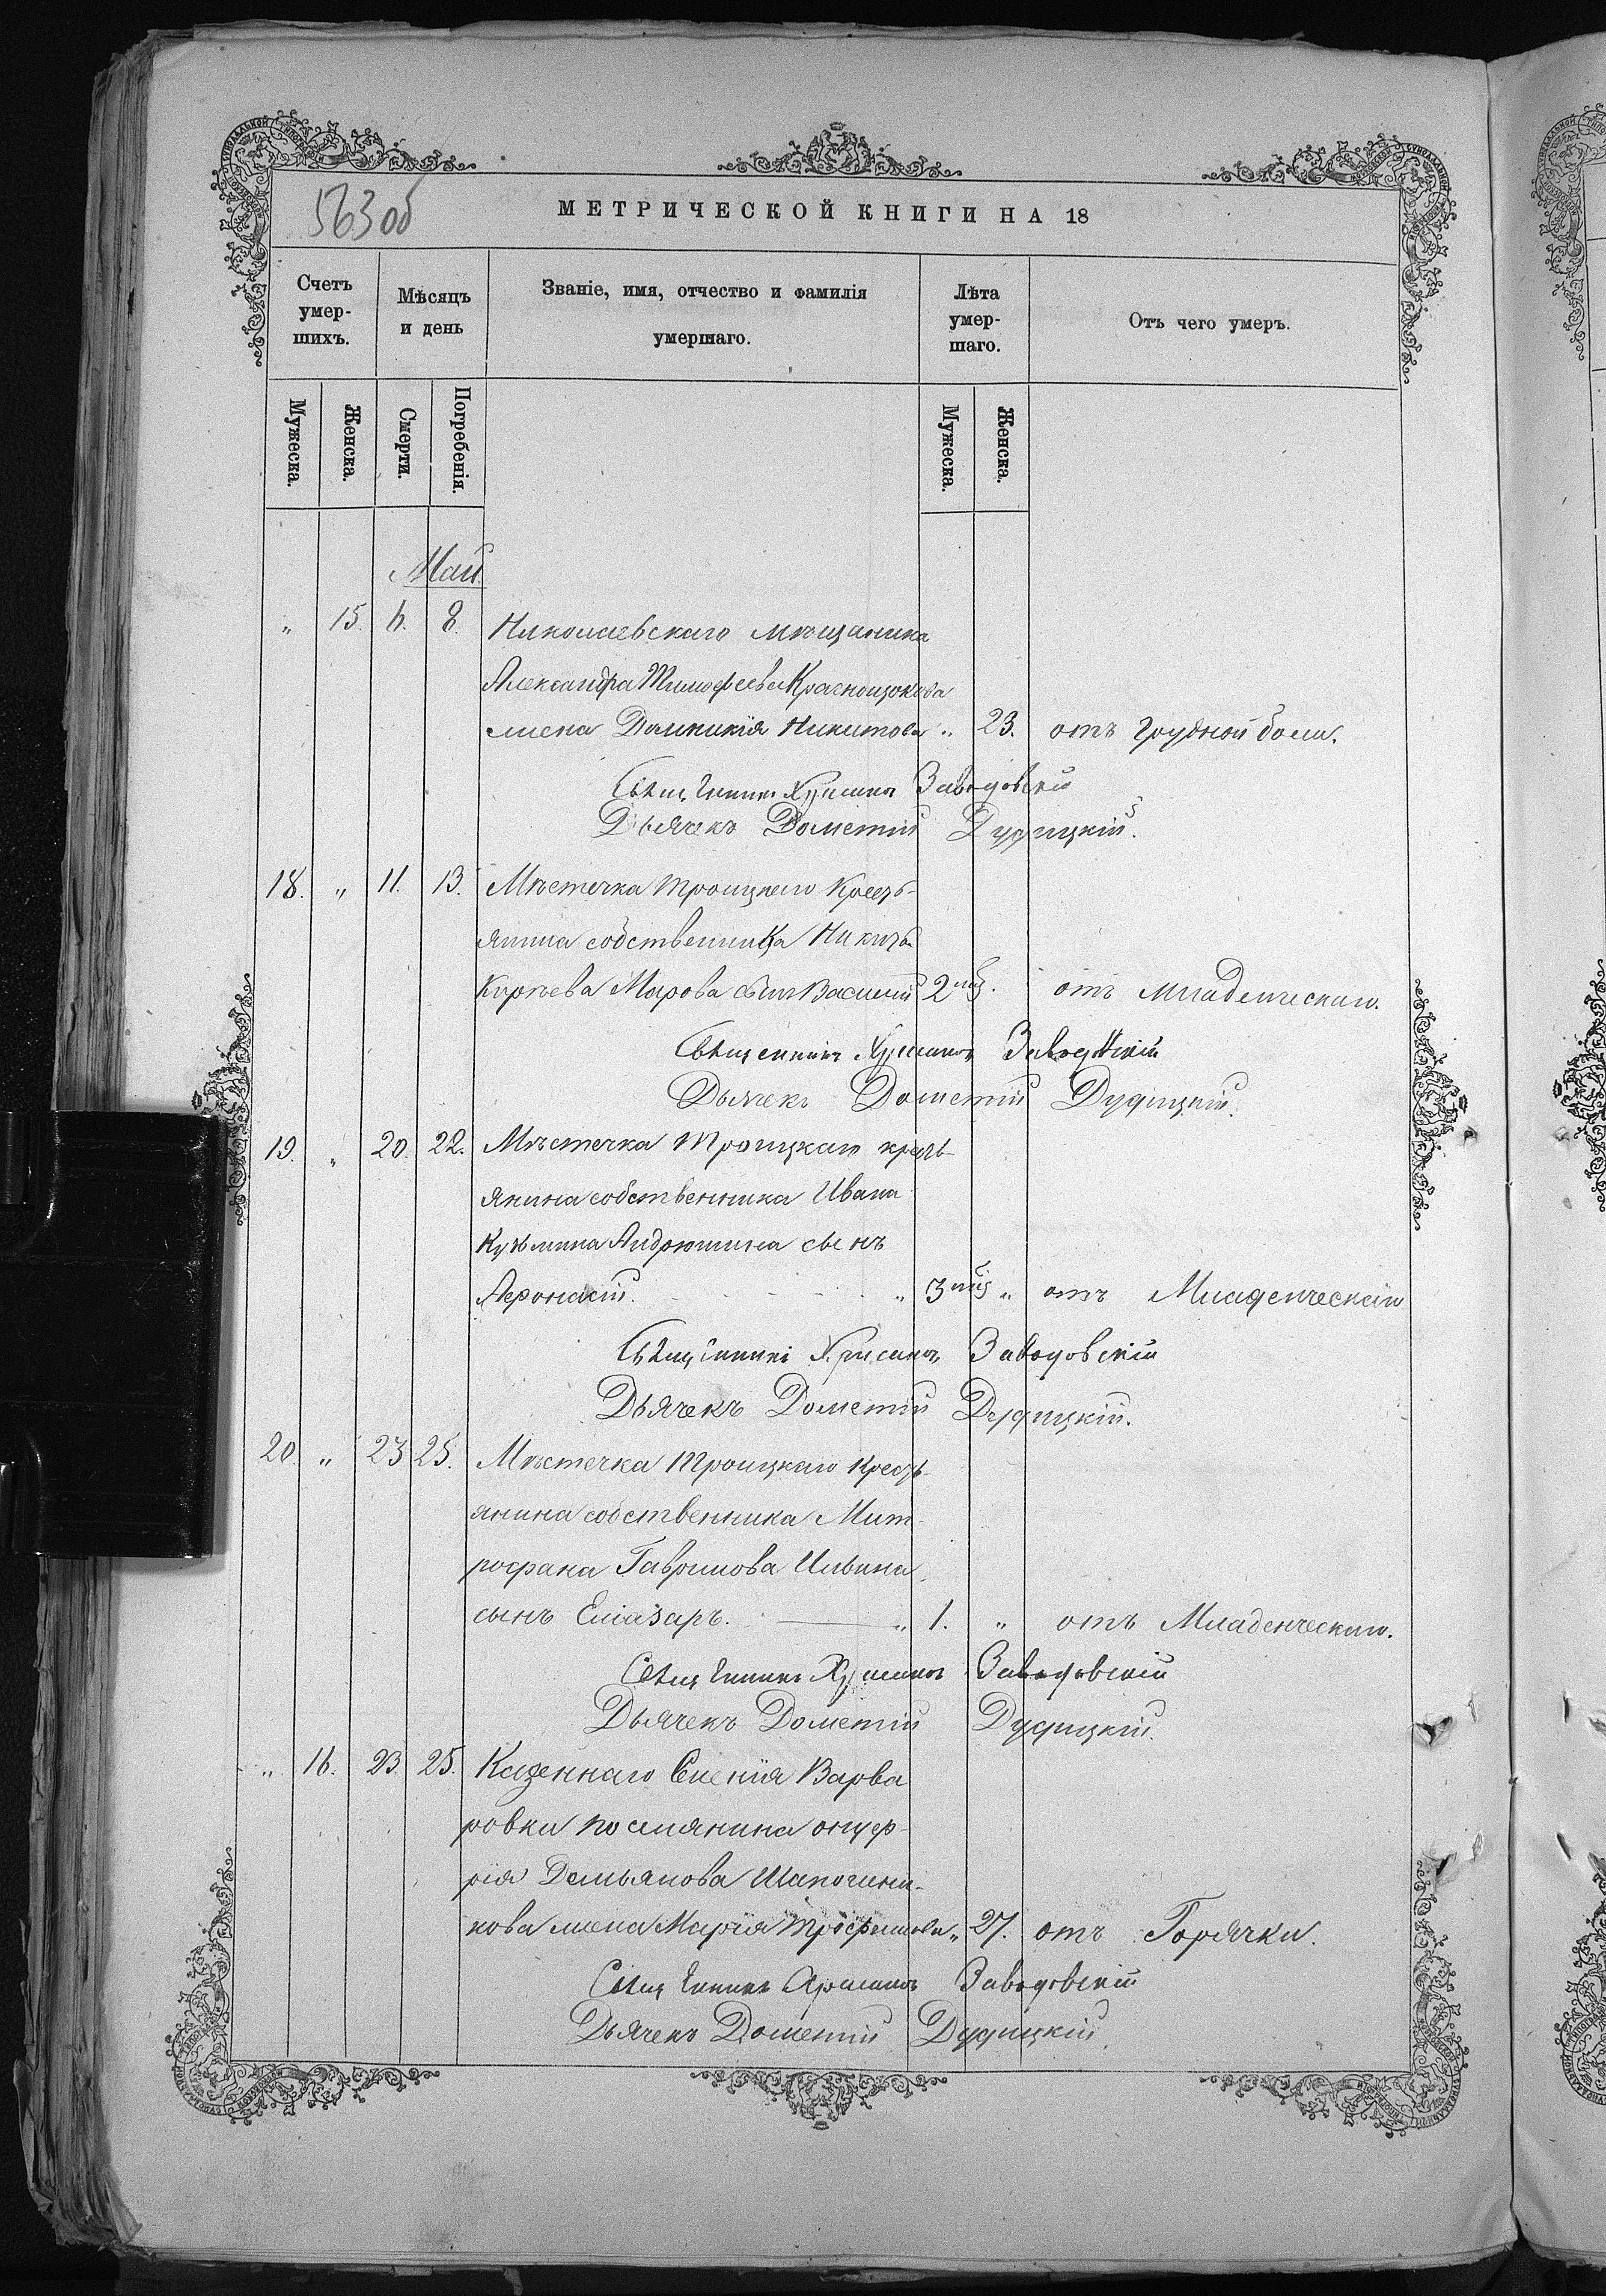 563 об
МЕТРИЧЕСКОЙ КНИГИ НА 18
Счетъ умер- шихъ.
Мѣсяцъ и день
Званіе, имя, отчество и фамилія умершаго.
Лѣта умер- шаго.
Отъ чего умеръ.
Мужеска. Женска. Смерти. Погребенія. Мужеска. Женска.
Май
" 15. 6. 8. Николаевскаго мѣщанина
Александра Тимофеева
жена Никитова " 23. отъ грудной боли.
Священникъ Хрисанѳъ Заводовскій
Дьячекъ Дометій Дудицкій.
18. " 11. 13. Мѣстечка Троицкаго Кресть-
янина собственника Никиты
Карпева Марова сынъ Василій 2 мѣс. отъ младенческаго.
Священникъ Хрисанѳъ Заводовскій
Дьячекъ Дометій Дудицкій.
19. " 20. 22. Мѣстечка Троицкаго кресть-
янина собственника Ивана
Кузьмина Андрюшина сынъ
Афонасій. " 3 мѣс " отъ Младенческаго
Священникъ Хрисанѳъ Заводовскій
Дьячекъ Дометій Дудицкій.
20. " 23 25. Мѣстечка Троицкаго Кресть-
янина собственника Мит-
рофана Гаврилова Ильина
сынъ Елиазаръ. " 1. " отъ Младенческаго.
Священникъ Хрисанѳъ Заводовскій
Дьячекъ Дометій Дудицкій.
" 16. 23. 25. Казеннаго Селенія Варва
ровки поселянина онуф-
рія Демьянова Шапочни-
кова жена Марія Трофимова " 27. отъ Горячки.
Священникъ Хрисанѳъ Заводовскій
Дьячекъ Дометій Дудицкій.